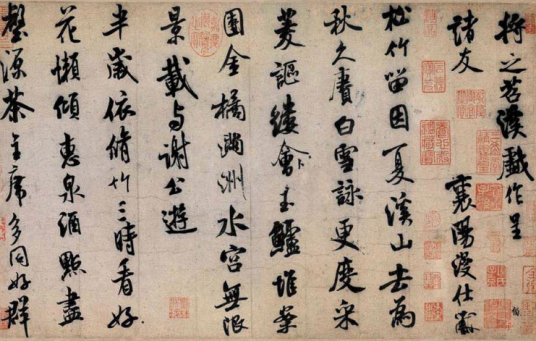 將之苕溪戲作呈
諸友 襄陽漫仕黻
松竹留因夏溪山去為
秋久賡白雪詠更度采
菱謳縷會玉鱸堆案
團金橘滿洲水宮無限
景載與謝公遊
半歲依脩竹三時看好
花懶傾惠泉酒點盡
壑源茶主席多同好群